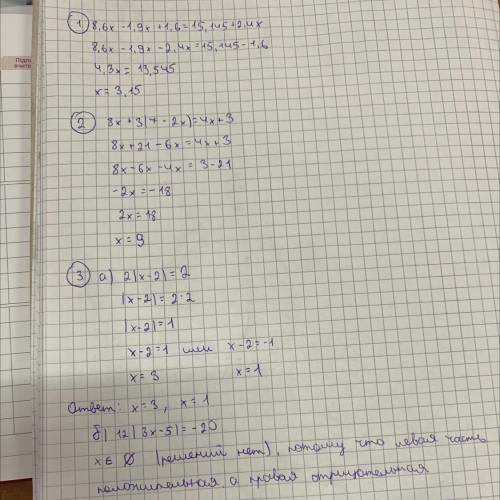 ① 8,6x - 1,9x + 1,6 = 15,145 + 2,4x
8,6x - 1,9x - 2,4x = 15,145 - 1,6
4,3x = 13,545
x = 3,15
② 8x + 3(7 - 2x) = 4x + 3
8x + 21 - 6x = 4x + 3
8x - 6x - 4x = 3 - 21
-2x = -18
2x = 18
x = 9
③ а) 2|x-2| = 2
|x-2| = 2:2
|x-2| = 1
x-2=1 или x-2=-1
x = 3 x=1
Ответ: x=3, x=1
б) 12|3x-5| = -20
x∈ ∅ (решений нет), потому что левая часть
положительная а правая отрицательная